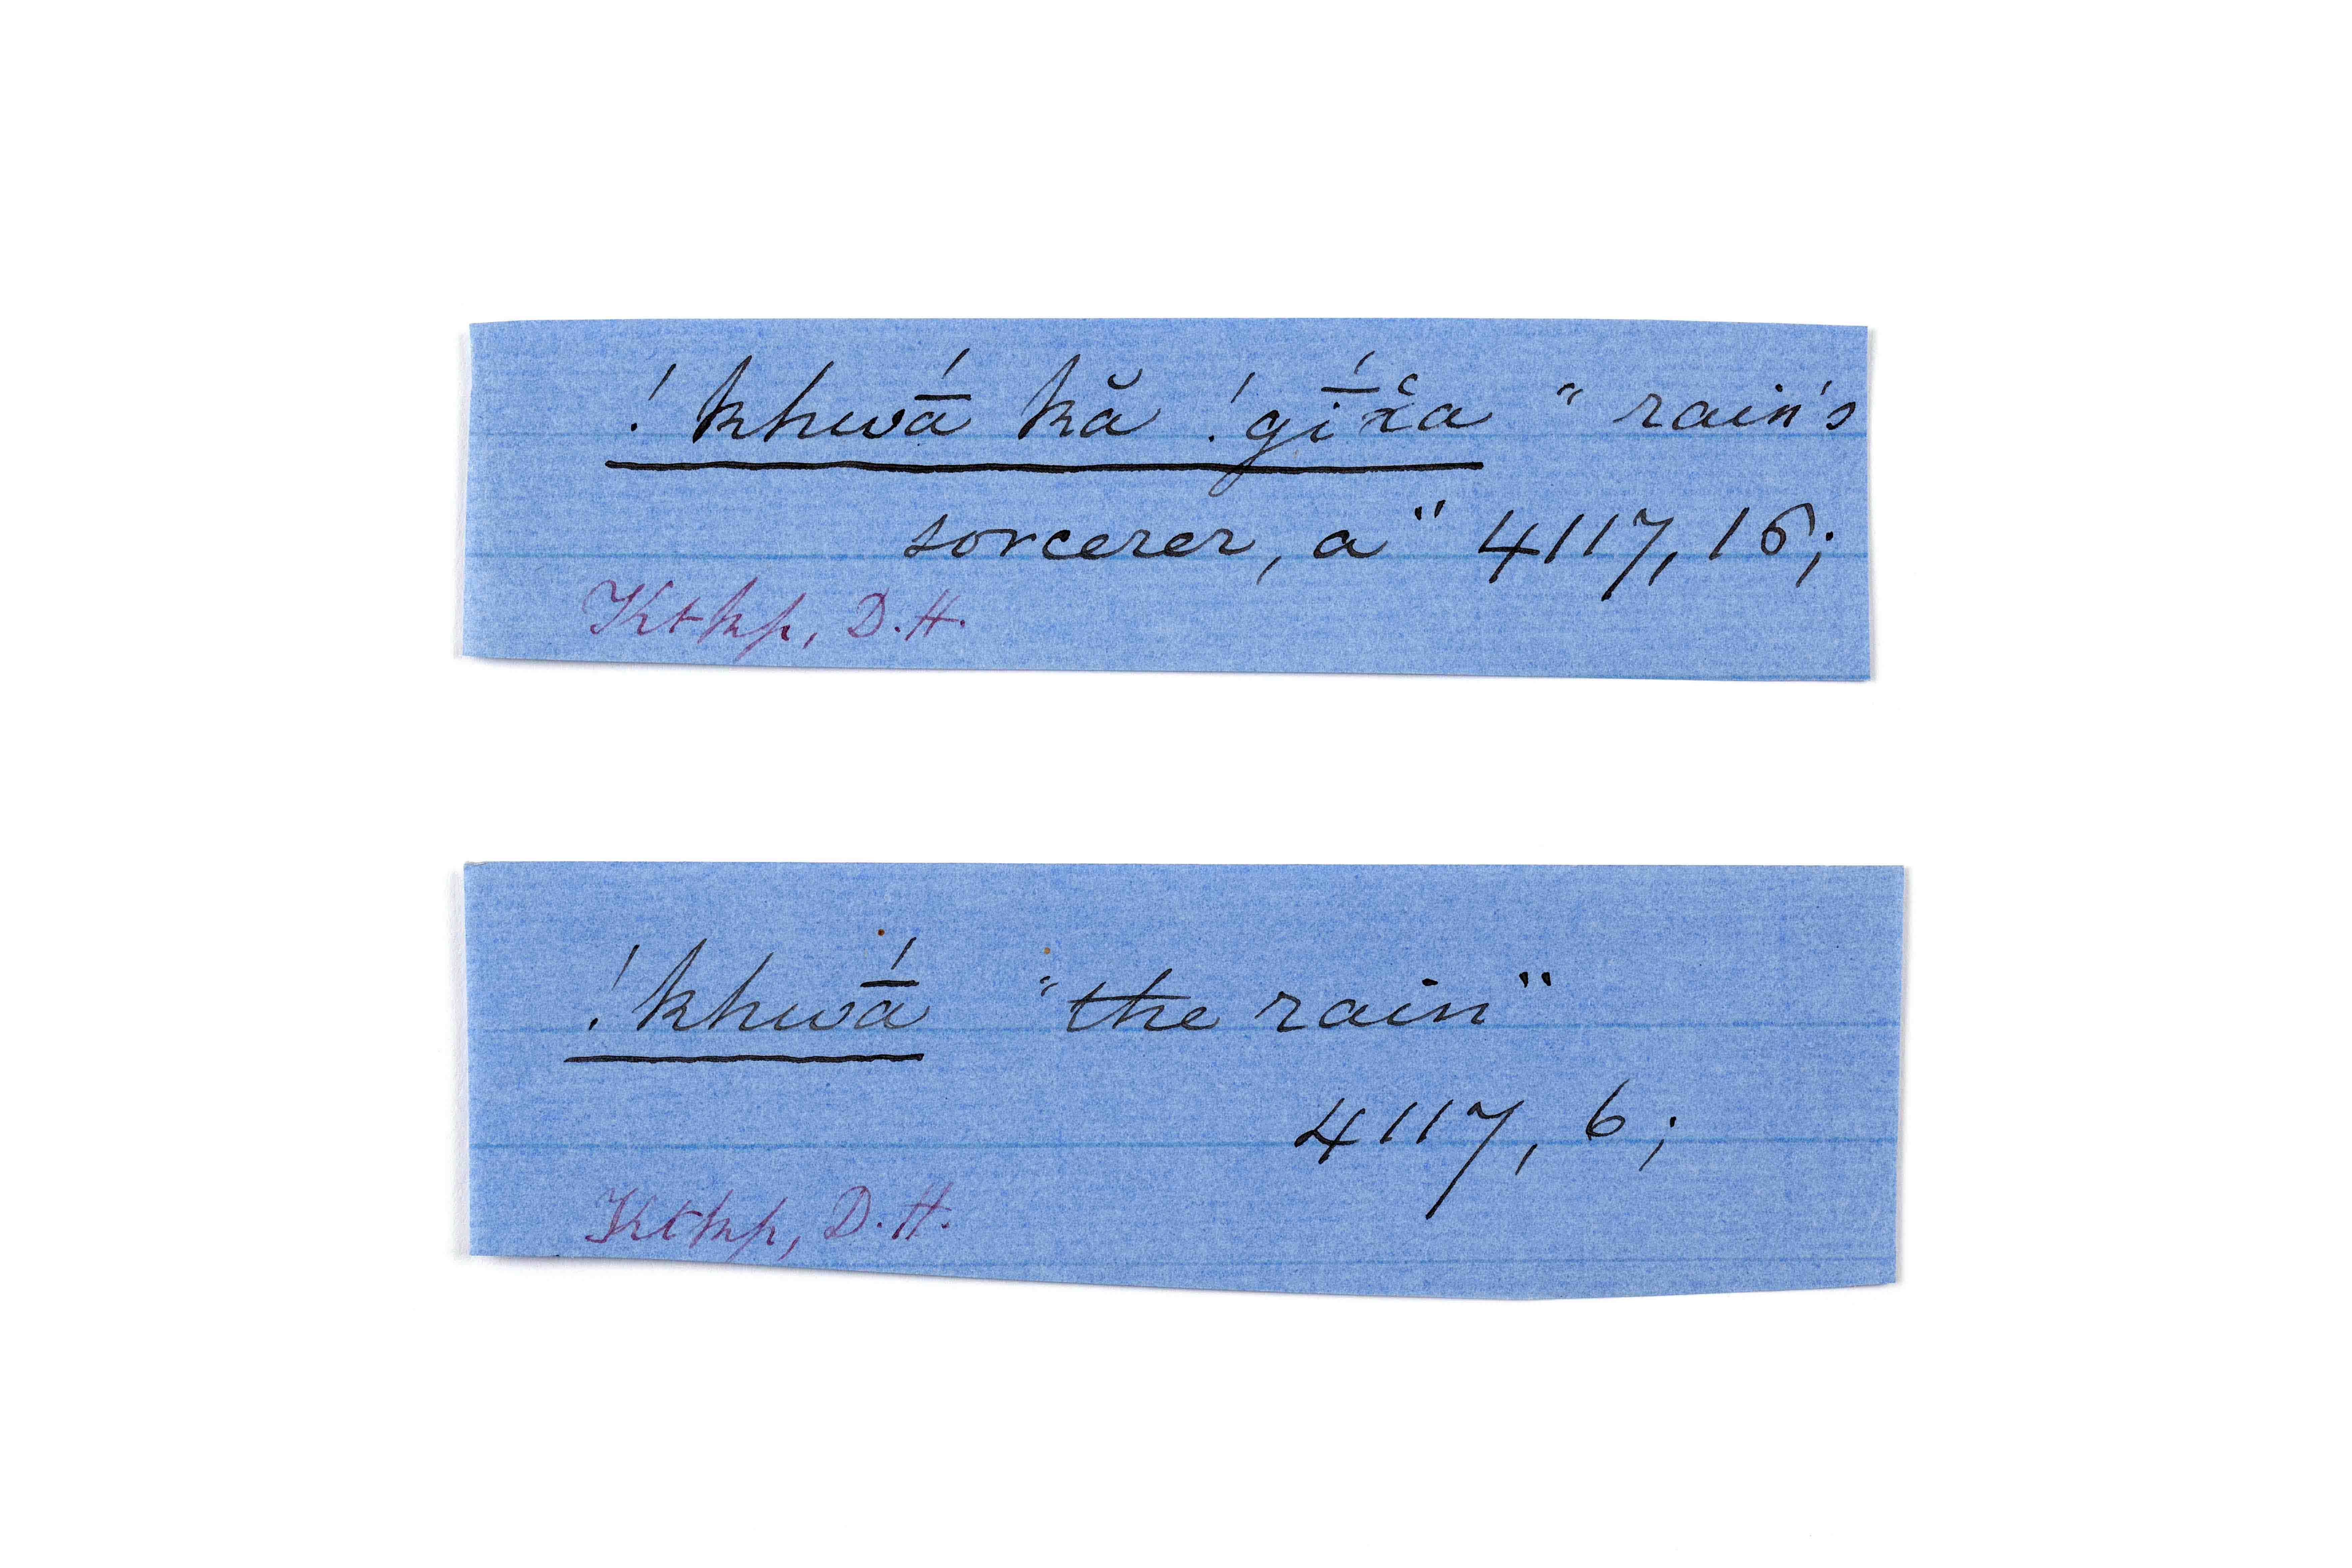 !khwā́ kă !gī́x̔a " rain's
sorcerer, a" 4117, 16;
Ktkkp, D.H.
!khwā́ "the rain"
4117, 6;
Ktkkp, D.H.